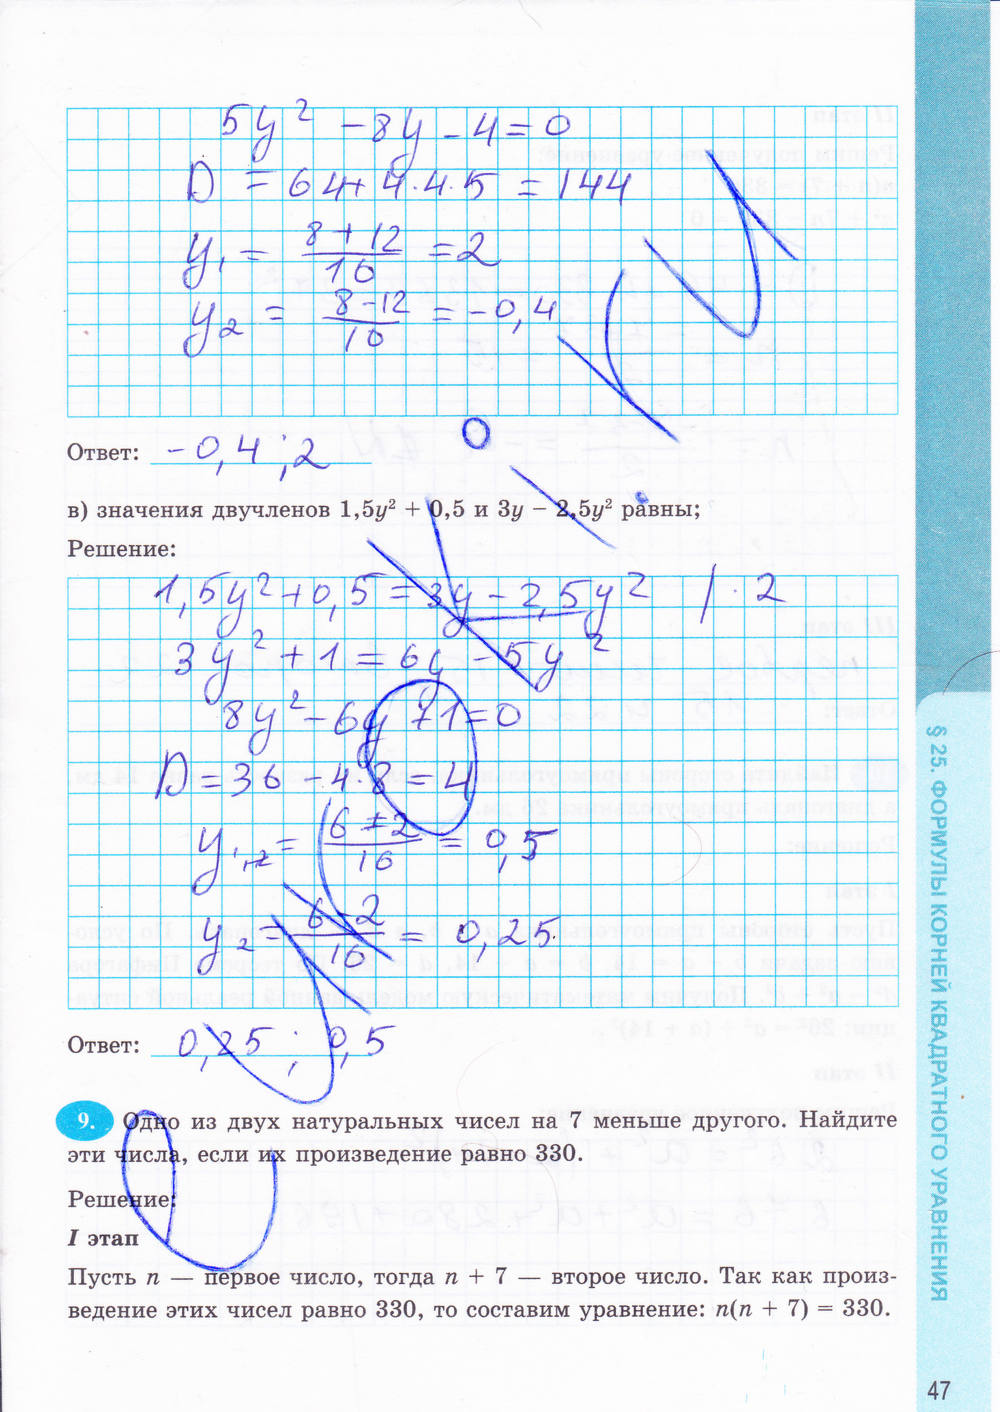 5y² - 8y - 4 = 0
D = 64 + 4·4·5 = 144
y₁ = (8 + 12)/10 = 2
y₂ = (8 - 12)/10 = -0,4
Ответ: -0,4 ; 2
в) значения двучленов 1,5y² + 0,5 и 3y − 2,5y² равны;
Решение:
1,5y² + 0,5 = 3y - 2,5y² / · 2
3y² + 1 = 6y - 5y²
8y² - 6y + 1 = 0
D = 36 - 4·8 = 4
y₁ = (6 + 2)/16 = 0,5
y₂ = (6 - 2)/16 = 0,25
Ответ: 0,25 ; 0,5
9. Одно из двух натуральных чисел на 7 меньше другого. Найдите
эти числа, если их произведение равно 330.
Решение:
I этап
Пусть n — первое число, тогда n + 7 — второе число. Так как произ-
ведение этих чисел равно 330, то составим уравнение: n(n + 7) = 330.
§ 25. ФОРМУЛЫ КОРНЕЙ КВАДРАТНОГО УРАВНЕНИЯ
47